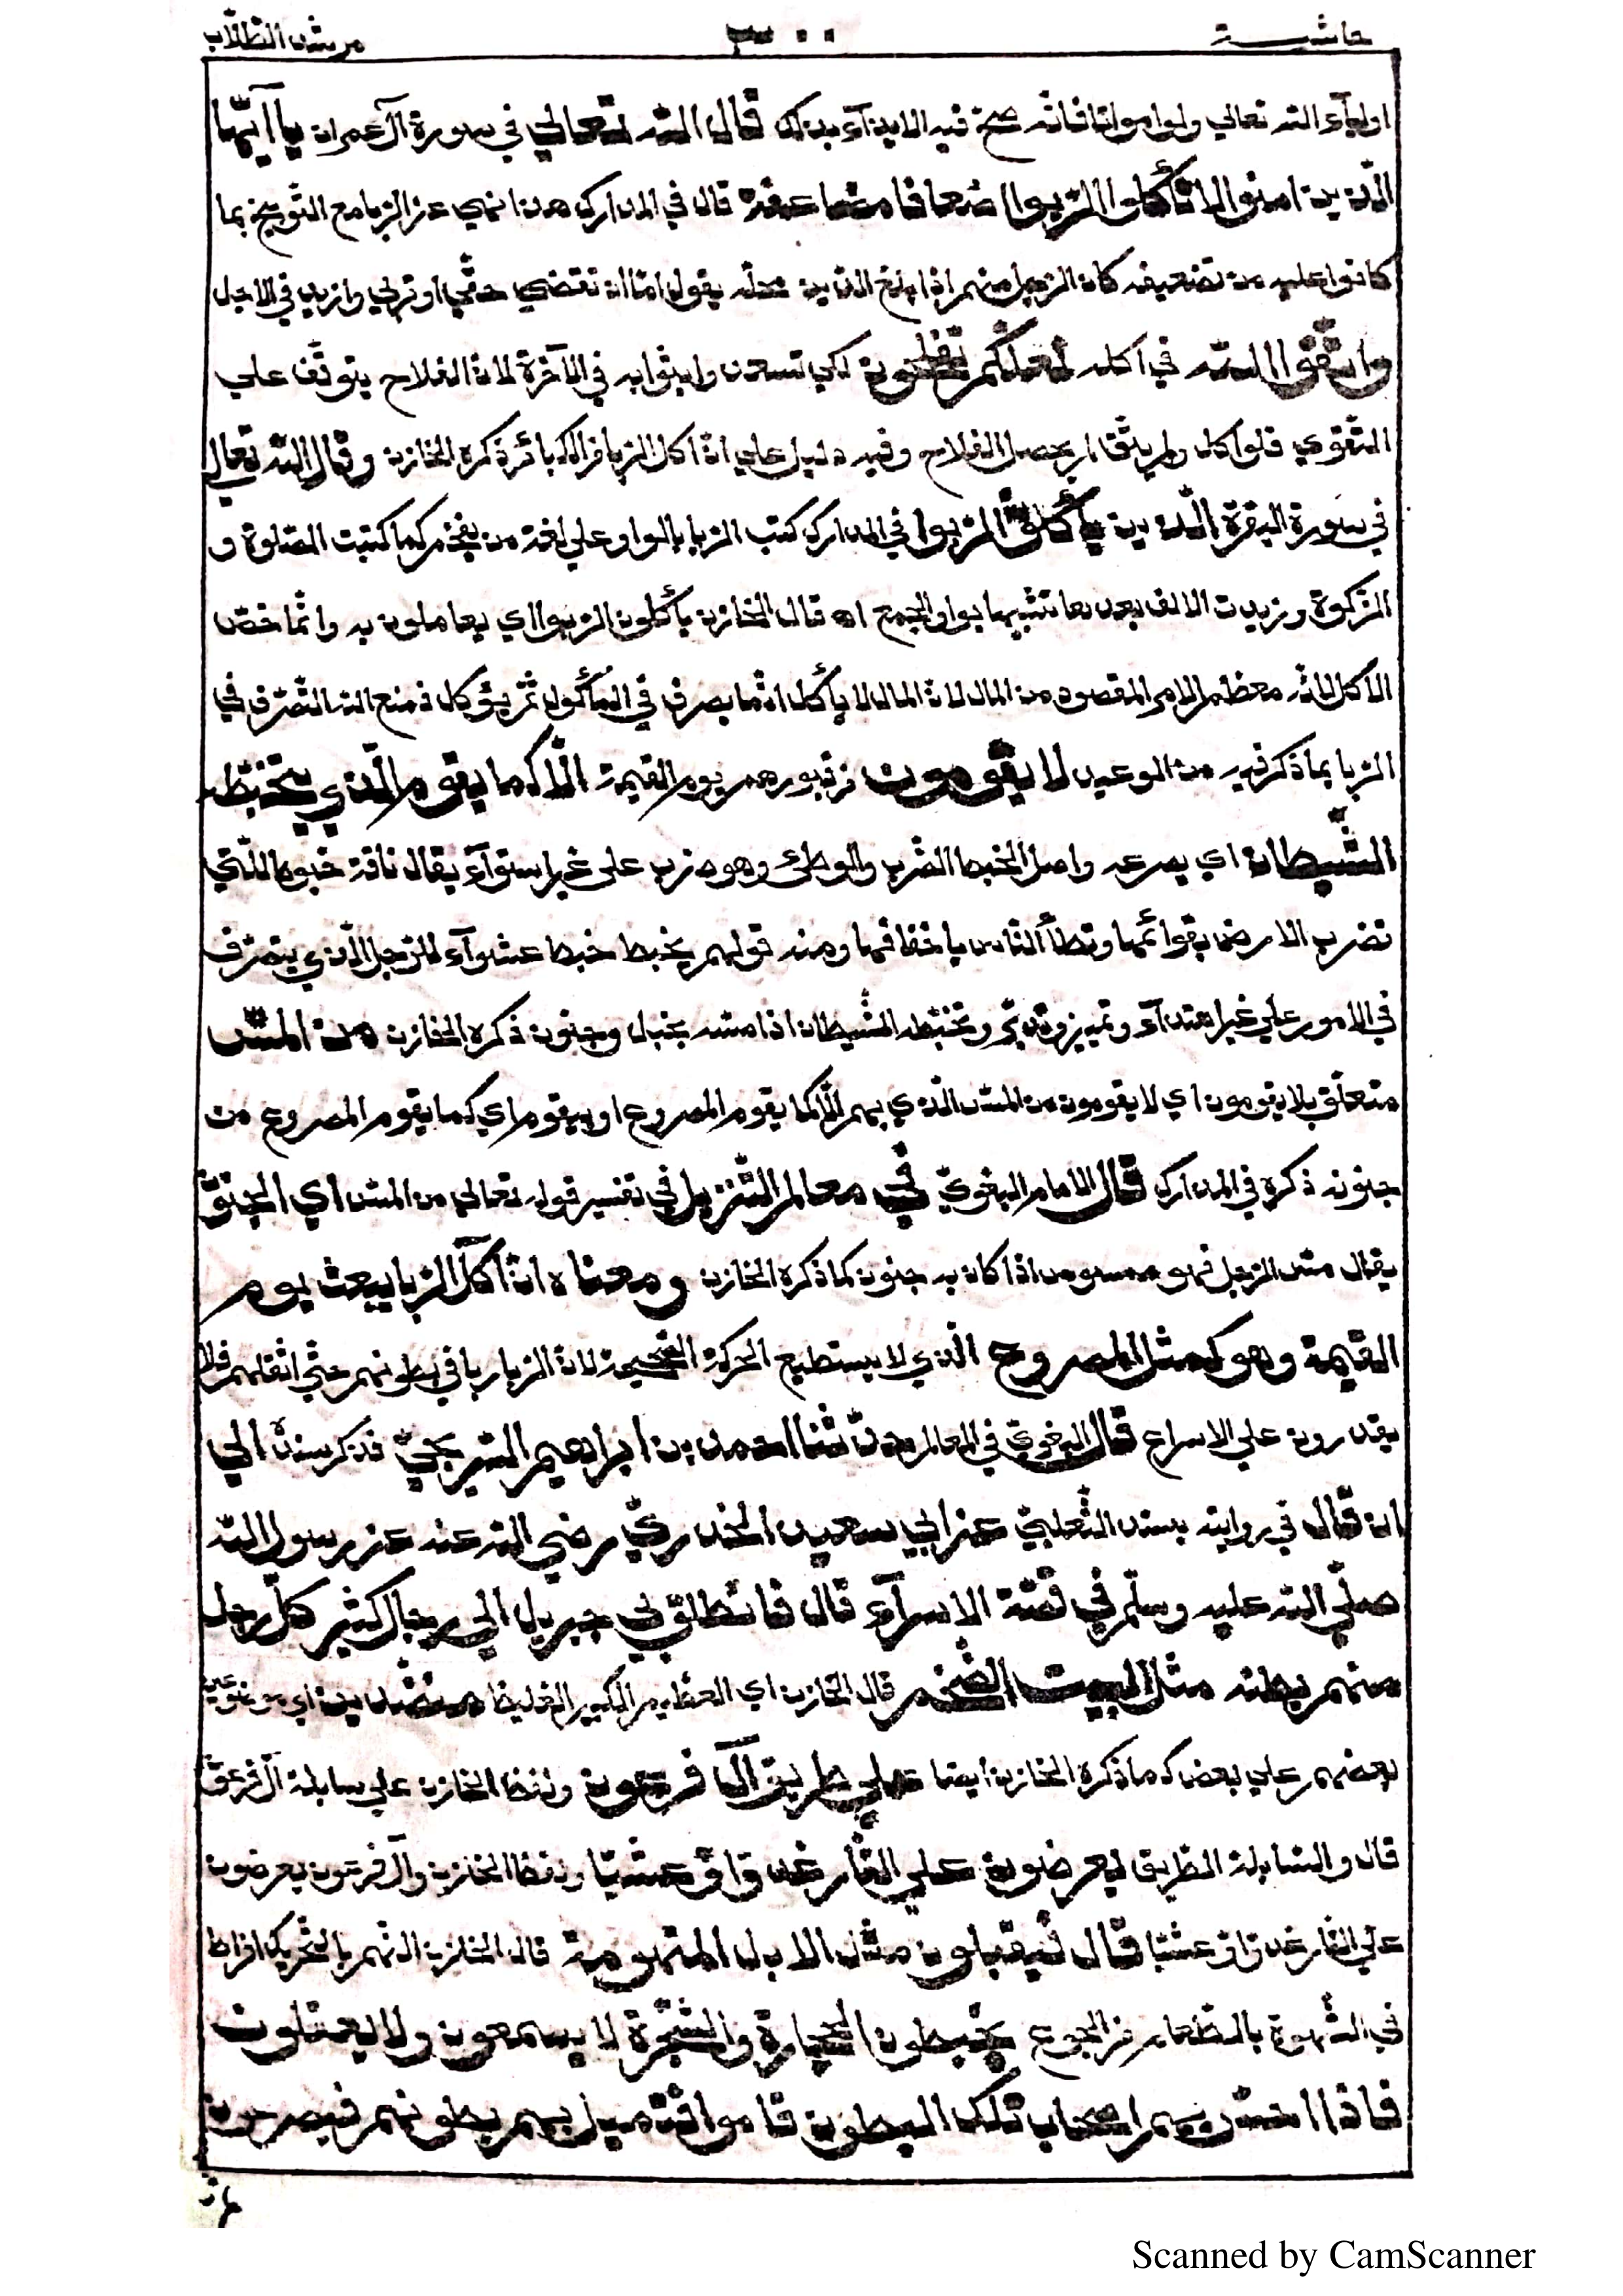 حاشية ٣٠٠ مرشد الطلّاب
اوليآء الله تعالي ولو امواتا فانّه صحّ فيه الايذآء بذلك قال الله تعالي في سورة آل عمران يا آيّها
الّذين امنوا لا تأكلوا الرّبوا اضعافا مضاعفة قال في المدارك هذا نهي عن الرّبا مع التّوبيخ بما
كانوا عليه من تضعيفه كان الرّجل منهم اذا بلغ الدّين محلّه يقول امّا ان تقضي حقّي او تربي وازيد في الاجل
واتّقوا اللّه في اكله لعلّكم تفلحون لكي تسعدوا بثوابه في الآخرة لانّ الفلاح يتوقّف علي
التّقوي فلو اكل ولم يتّق لم يحصل الفلاح وفيه دليل علي انّ اكل الرّبا من الكبائر ذكره الخازن وقال الله تعالي
في سورة البقرة الّذين يأكلون الرّبوا في المدارك كتب الرّبا بالواو علي لغة من يفخّم كما كتبت الصّلوة و
الزّكوة وزيدت الالف بعدها تشبيها بواو الجمع اه قال الخازن يأكلون الرّبوا اي يعاملون به وانّما خصّ
الاكل لانّه معظم الامر المقصود من المال لانّ المال لا يأكل انّما يصرف في المأكول ثمّ يؤكل فمنع الله التّصرّف في
الرّبا بما ذكر فيه من الوعيد لا يقومون من قبورهم يوم القيمة الّا كما يقوم الّذي يتخبّطه
الشّيطان اي يصرعه واصل الخبط الضّرب والوطئ وهو ضرب على غير استوآء يقال ناقة خبوط للّتي
تضرب الارض بقوائمها وتطأ النّاس باخفافها ومنه قولهم يخبط خبط عشوآء للرّجل الّذي يتصرّف
في الامور علي غير اهتدآء وتمييز وتدبّر وتخبّطه الشّيطان اذا مسّه بخبل وجنون ذكره الخازن من المسّ
متعلّق بلا يقومون اي لا يقومون من المسّ الّذي بهم الّا كما يقوم المصروع او بيقوم اي كما يقوم المصروع من
جنونه ذكره في المدارك قال الامام البغويّ في معالم التّنزيل في تفسير قوله تعالي من المسّ اي الجنون
يقال مسّ الرّجل فهو ممسوس اذا كان به جنون كما ذكره الخازن ومعناه انّ آكل الرّبا يبعث يوم
القيمة وهو كمثل المصروع الّذي لا يستطيع الحركة الصّحيحة لانّ الرّبا ربا في بطونهم حتّي اثقلهم فلا
يقدرون علي الاسراع قال البغويّ في المعالم حدّثنا احمد بن ابراهيم الشّريحيّ فذكر سنده الي
ان قال في روايته بسند الثّعلبيّ عن ابي سعيد الخدريّ رضي الله عنه عن رسول الله
صلّي الله عليه وسلّم في قصّة الاسرآء قال فانطلق بي جبريل الي رجال كثير كلّ رجل
منهم بطنه مثل البيت الضّخم قال الخازن اي العظيم الكبير الغليظ منضّدين اي موضوعين
بعضهم علي بعض كما ذكره الخازن ايضا علي طريق آل فرعون ولفظ الخازن علي سابلة آل فرعون
قال والسّابلة الطّريق يعرضون علي النّار غدوّا وعشيّا ولفظ الخازن وآل فرعون يعرضون
علي النّار غدوّا وعشيّا قال فيقبلون مثل الابل المنهومة قال الخازن النّهم بالتّحريك افراط
في الشّهوة بالطّعام من الجوع يخبطون الحجارة والشّجرة لا يسمعون ولا يعقلون
فاذا احسّ بهم اصحاب تلك البطون قاموا فتميل بهم بطونهم فيصرعون